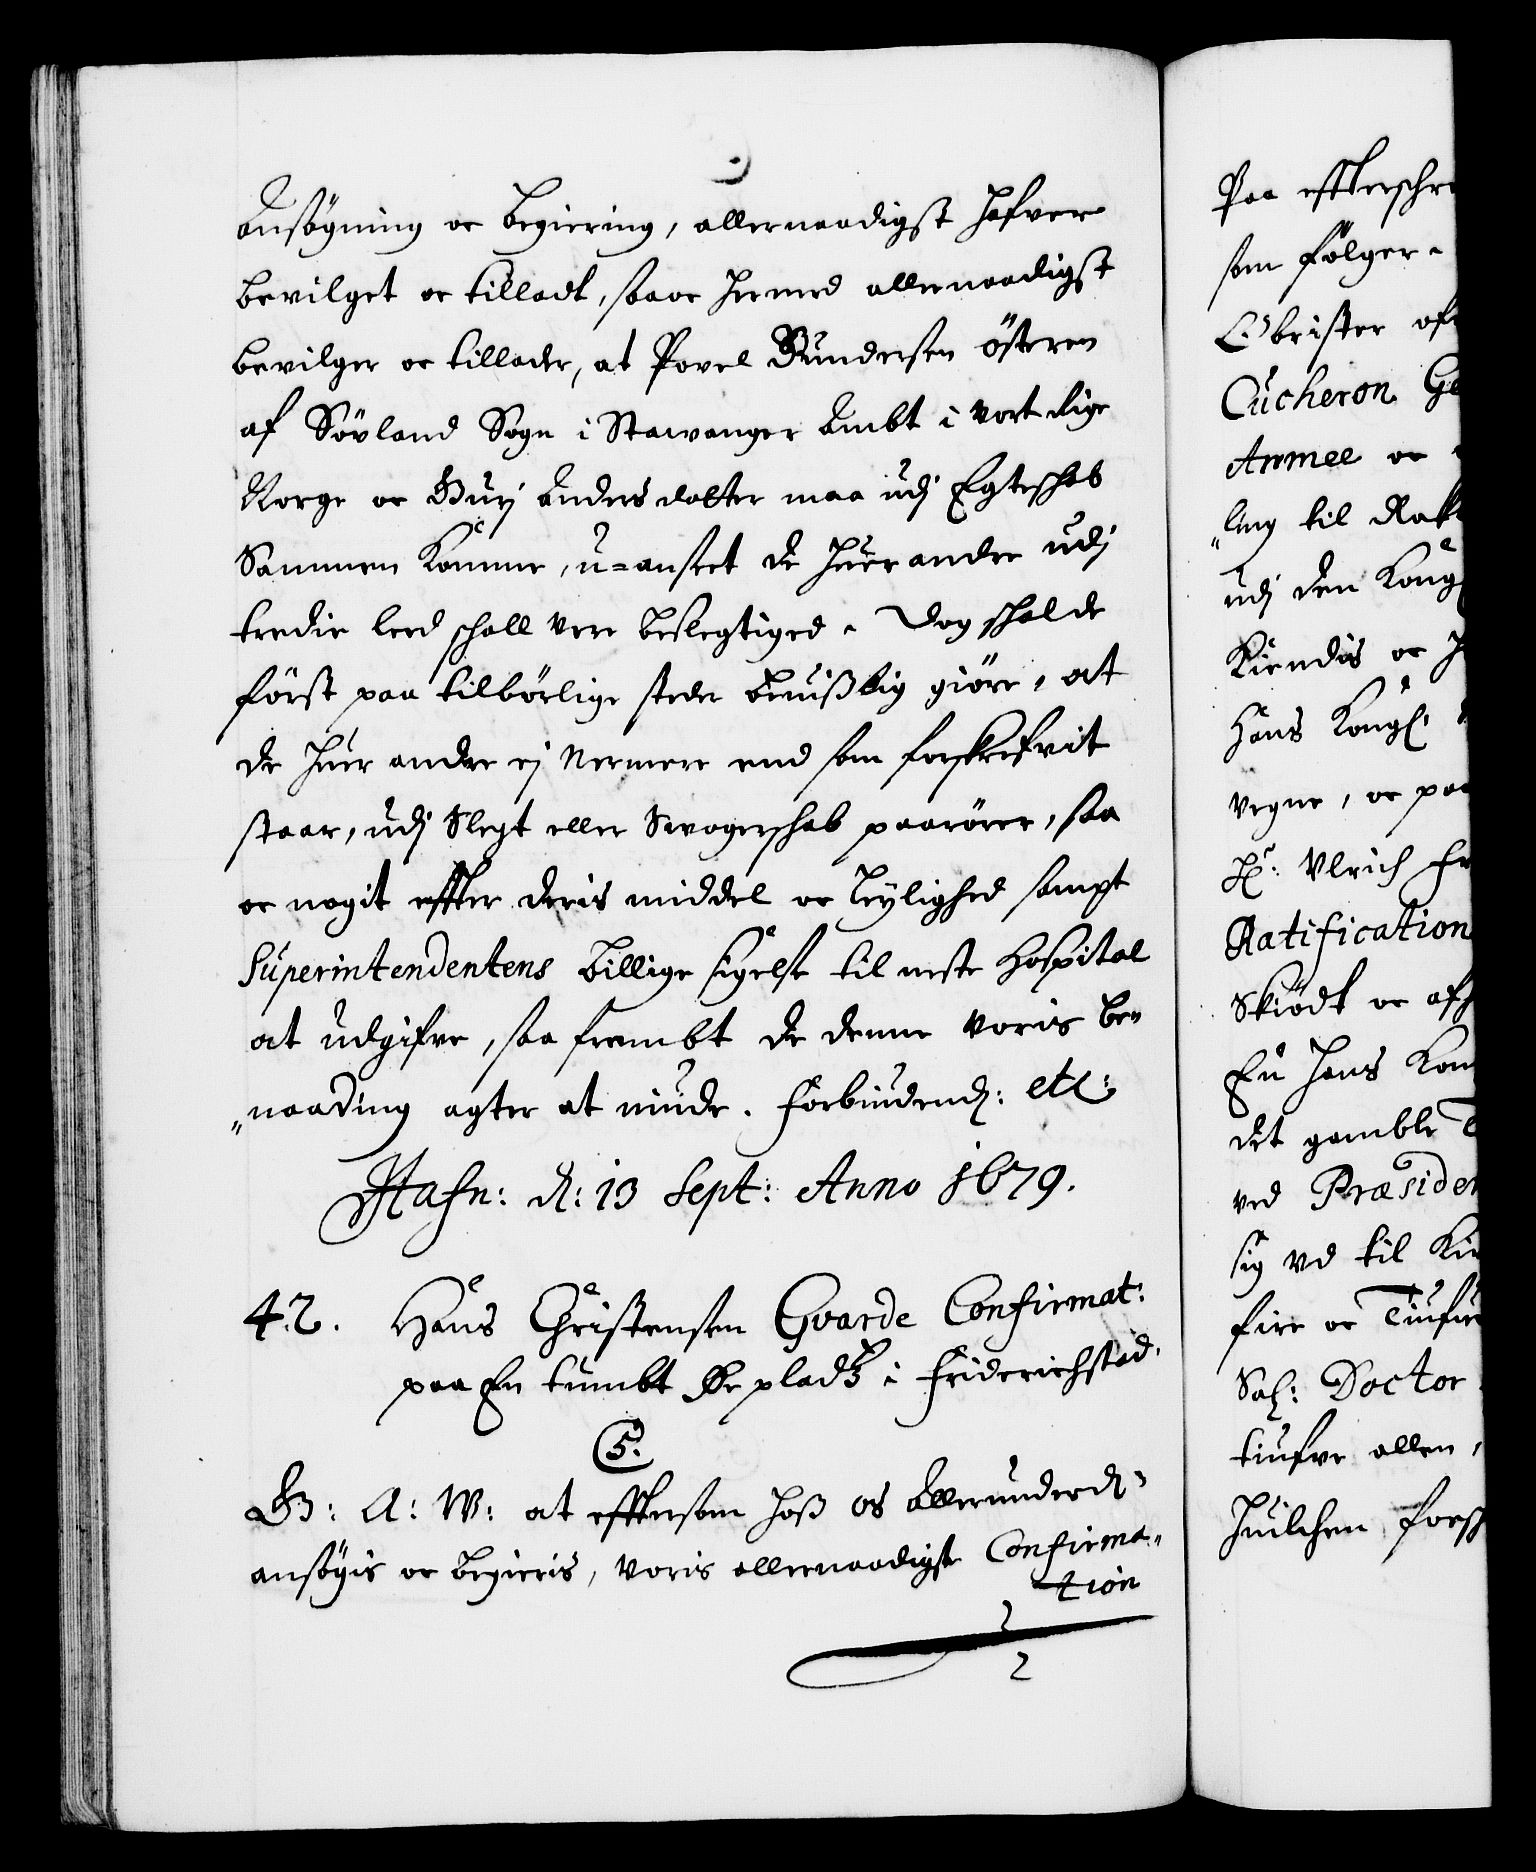 Ansögning oc begiering, allernaadigst hafver
bevilget oc tilladt, saa oc hermed allernaadigst
bevilger oc tillader, at Povel Gundersen Österen
af Sövland Sogn i Stawanger Ambt i vort Rige
Norge oc Gurj Andersdatter maa udj Egteschab
Sammen Komme, u=anseet de huer andre udj
tredie leed schall vere beslegtiged. Dog schal de
först paa tilbörlige steder beviißlig giöre, at
de huer andre ej nermere end som forskrefvit
staar, udj Slegt eller Svogerschab paarörer, saa
oc nogit effter deris middel oc leylighed sampt
Superintendentens billige sigelse til neste Hospital
at udgifve, saa frembt de denne voris be„
„naading agter at niude. Forbiudend: etc:
Hafn: d: 13 Sept: Anno 1679.
42. Hans Christensen Gvarde Confirmat:
paa En tumbt Be pladtz i Friderichstad.
C5.
G: A: W: at effter som hoß os Allerunderd:
ansögis oc begieris, voris allernaadigste Confirma„
tion
Paa effterschre
som fölger.
Obrister of
Cucheron Ge
Armee oc
„ling til Rak
udj den Kong
Kiendis oc h
Hans Kongl:
vegne, oc paa
H: Ulrich Fr
Ratification
Skiödt oc afh
En hans Kon
det gamble T
ved Præsiden
sig ud til Kir
fire oc Tiufu
Sal: Doctor
tiufve allen,
huilchen forsch